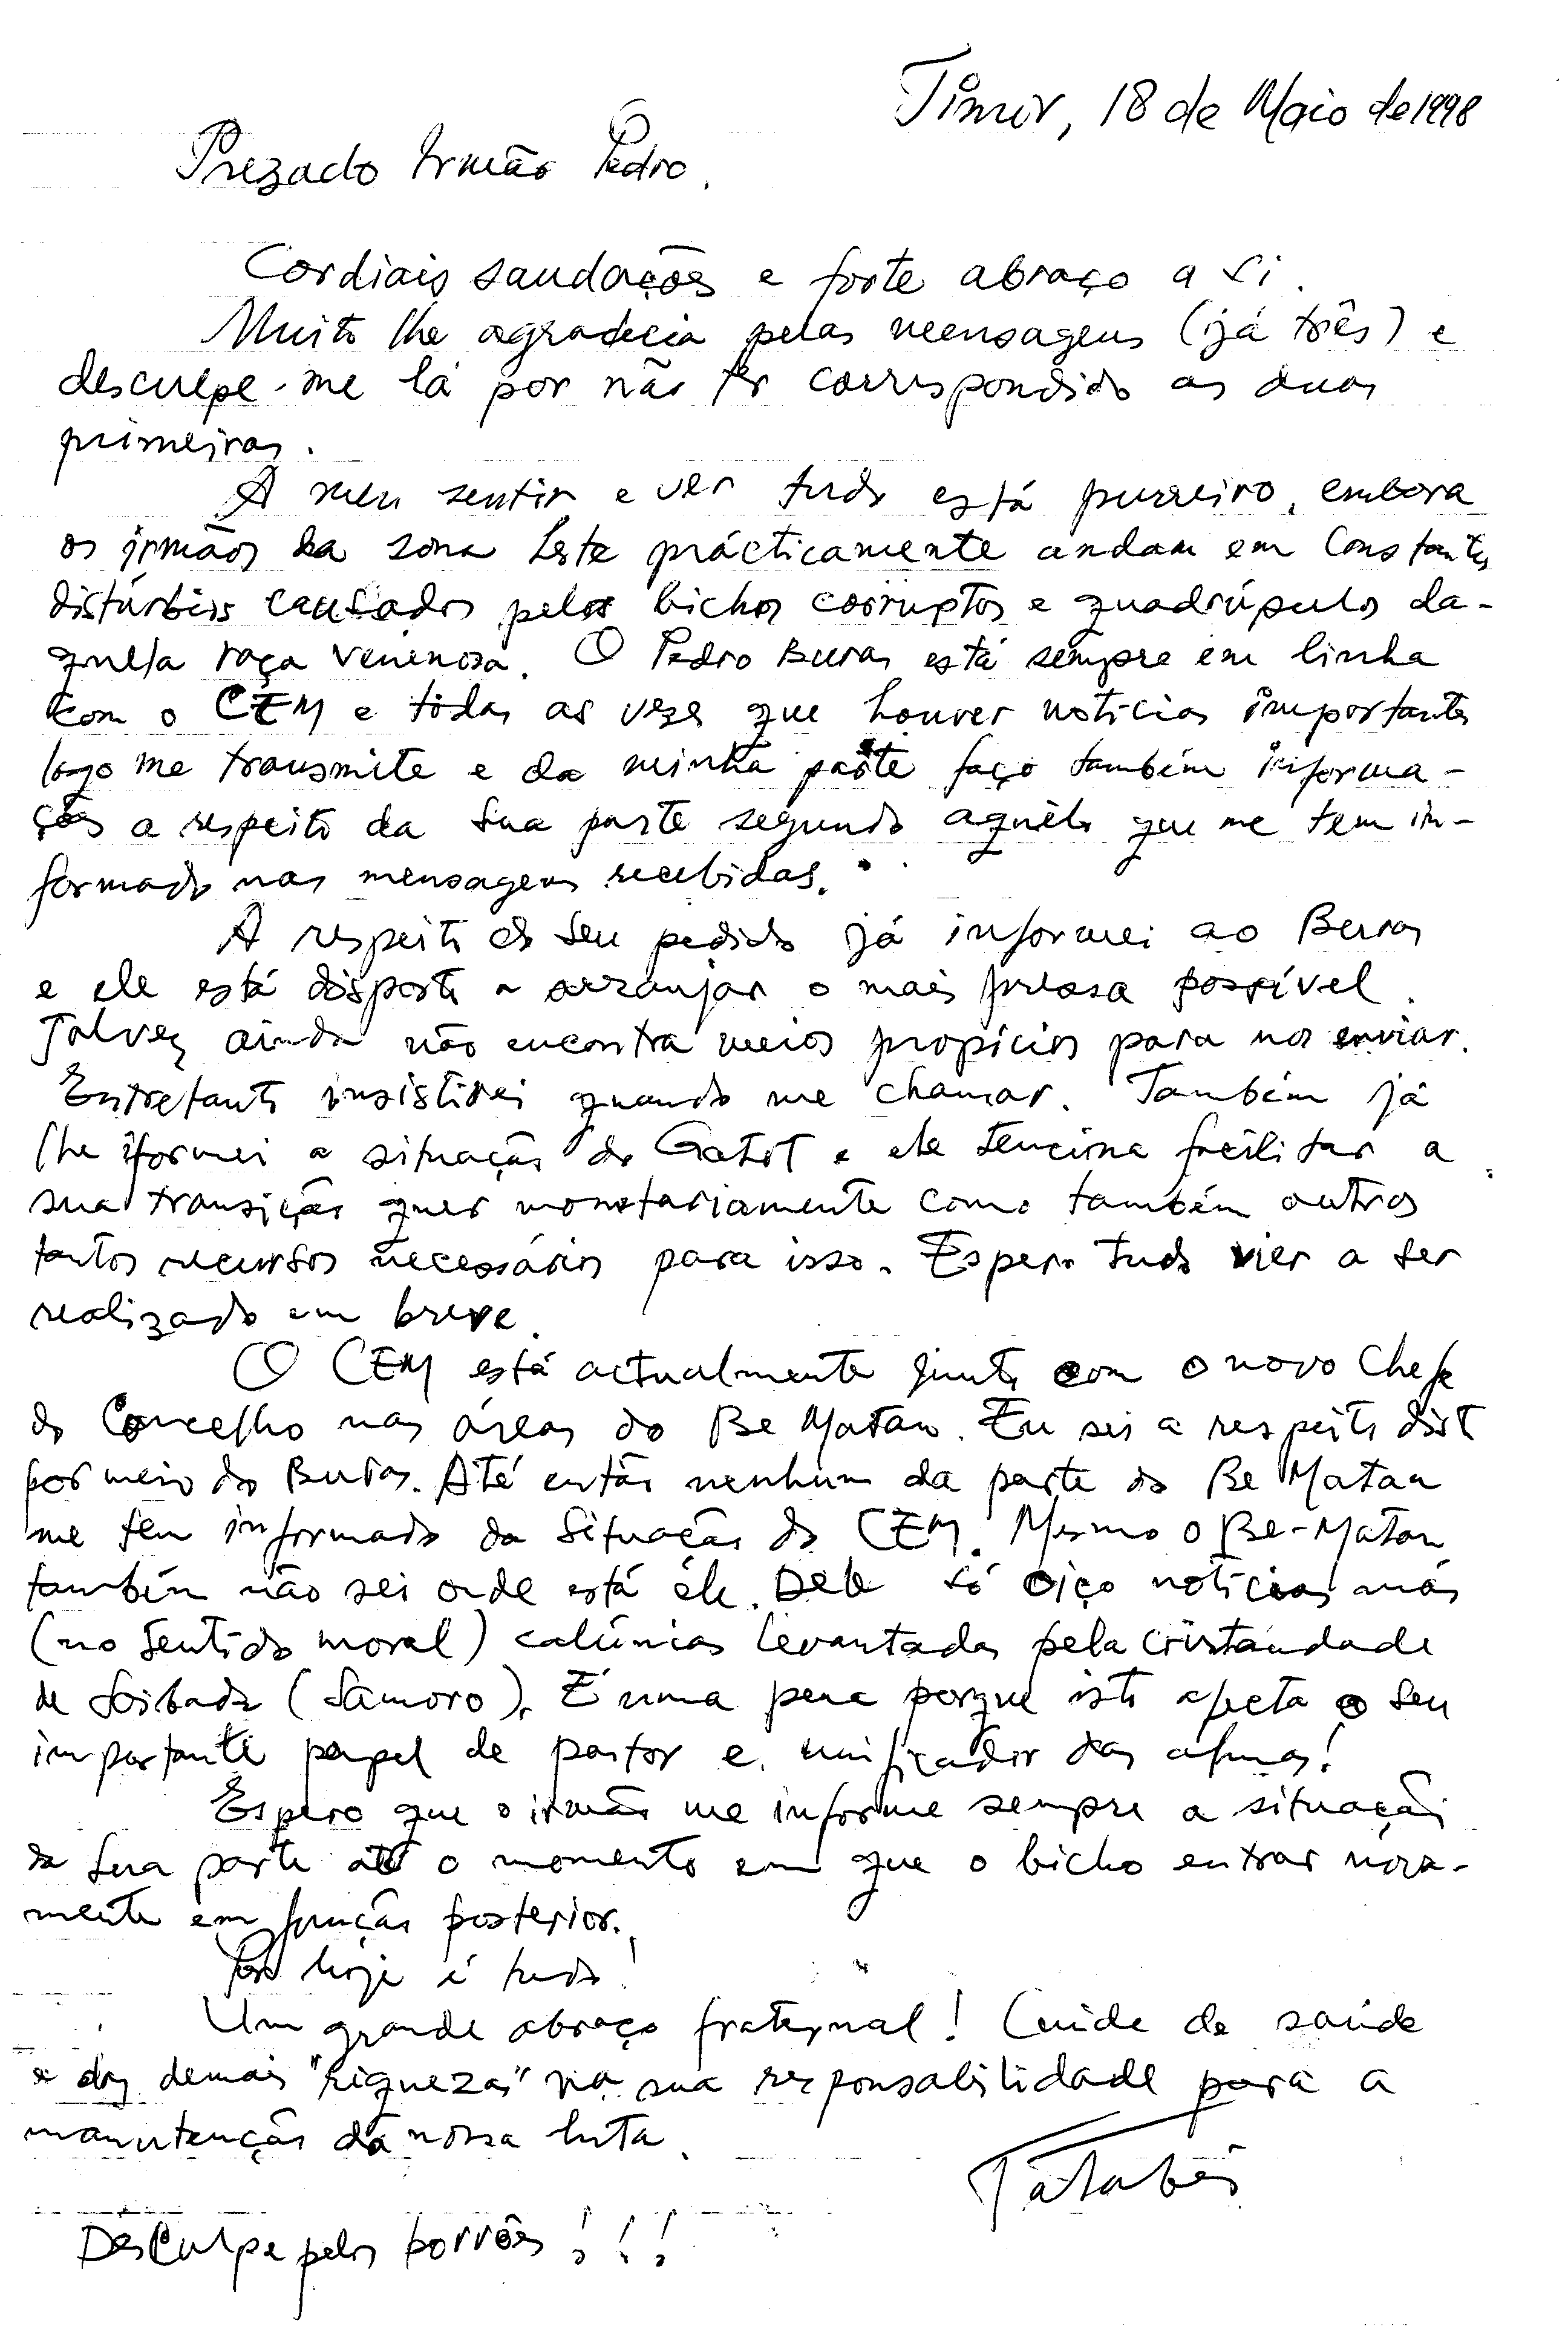 Timor, 18 de Maio de 1998
Prezado Irmão Pedro.
Cordiais saudações e forte abraço a si.
Muito lhe agradecia pelas mensagens (já três) e
desculpe-me lá por não ter correspondido as duas
primeiras.
A meu sentir e ver tudo está purreiro, embora
os irmãos da zona Leste prácticamente andam em constantes
distúrbios causados pelos bichos corruptos e quadrúpulos da-
quela raça venenosa. O Pedro Buras está sempre em linha
com o CEM e tôdas as vezes que houver notícias importantes
logo me transmite e da minha parte faço também informa-
ções a respeito da sua parte segundo aquêlo que me tem in-
formado nas mensagens recebidas.
A respeito do seu pedido já informei ao Buras
e ele está disposto a arranjar o mais pressa possível.
Talvez ainda não encontra meios propícios para nos enviar.
Entretanto insistirei quando me chamar. Também já
lhe iformei a situação do Gatot e ele tenciona facilitar a
sua transição quer monetariamente como também outros
tantos recursos necessários para isso. Espero tudo vier a ser
realizado em breve.
O CEM está actualmente junto com o novo Chefe
do Concelho nas áreas do Be Matan. Eu sei a respeito disto
por meio do Buras. Até então nenhum da parte do Be Matan
me tem informado da situação do CEM. Mesmo o Be-Matan
também não sei onde está êle. Dele só oiço notícias más
(no sentido moral) calúnias levantadas pela cristandade
de Soibada (Samoro). É uma pena porque isto afecta o seu
importante papel de pastor e unificador das almas!
Espero que o irmão me informe sempre a situação
da sua parte até o momento em que o bicho entrar nova-
mente em função posterior.
Por hoje é tudo!
Um grande abraço fraternal! Cuide da saúde
e das demais "riquezas" na sua responsabilidade para a
manutenção da nossa luta.
Desculpe pelos borrões!!!